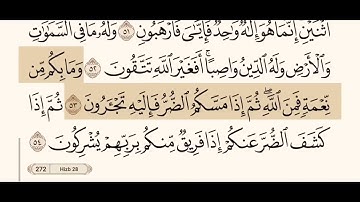 ٱثْنَيْنِ إِنَّمَا هُوَ إِلَٰهٌ وَٰحِدٌ فَإِيَّـٰىَ فَٱرْهَبُونِ ٥١ وَلَهُۥ مَا فِى ٱلسَّمَـٰوَٰتِ
وَٱلْأَرْضِ وَلَهُ ٱلدِّينُ وَاصِبًا ۚ أَفَغَيْرَ ٱللَّهِ تَتَّقُونَ ٥٢ وَمَا بِكُم مِّن
نِّعْمَةٍ فَمِنَ ٱللَّهِ ۖ ثُمَّ إِذَا مَسَّكُمُ ٱلضُّرُّ فَإِلَيْهِ تَجْـَٔرُونَ ٥٣ ثُمَّ إِذَا
كَشَفَ ٱلضُّرَّ عَنكُمْ إِذَا فَرِيقٌ مِّنكُم بِرَبِّهِمْ يُشْرِكُونَ ٥٤
272 Hizb 28